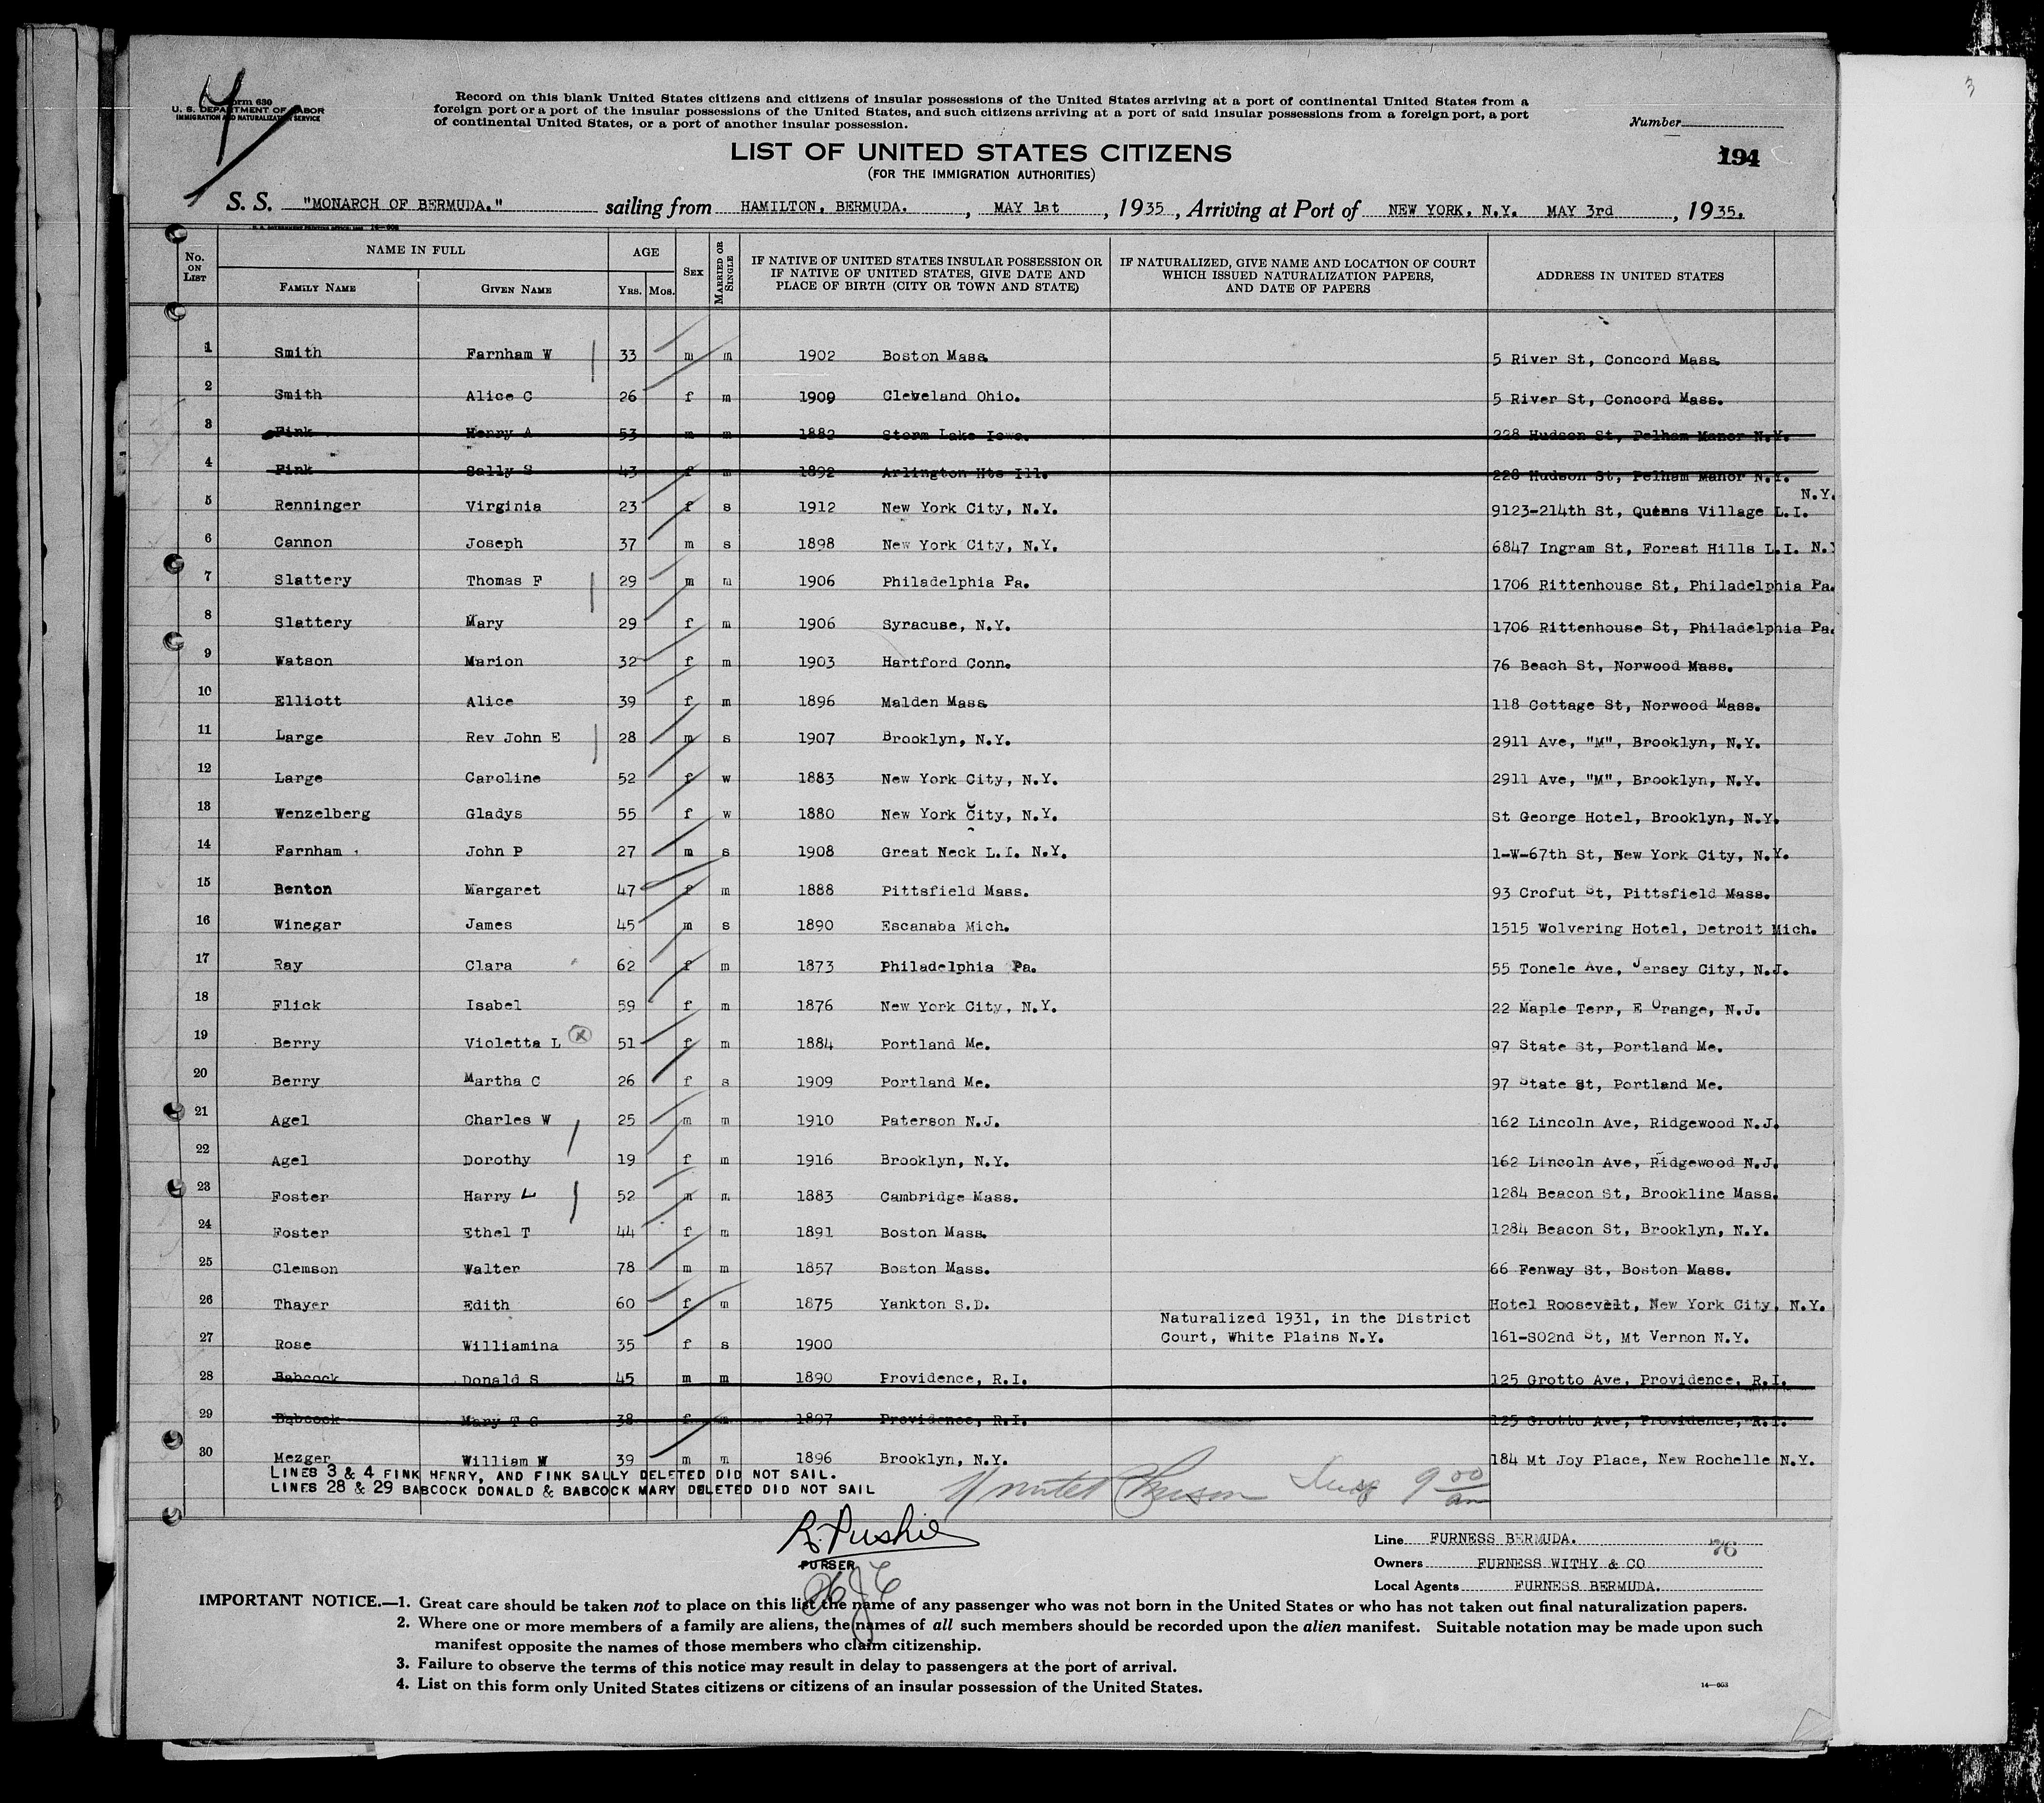 3
4
Form 630
U. S. DEPARTMENT OF LABOR
IMMIGRATION AND NATURALIZATION SERVICE
Record on this blank United States citizens and citizens of insular possessions of the United States arriving at a port of continental United States from a
foreign port or a port of the insular possessions of the United States, and such citizens arriving at a port of said insular possessions from a foreign port, a port
of continental United States, or a port of another insular possession.
Number
LIST OF UNITED STATES CITIZENS
(FOR THE IMMIGRATION AUTHORITIES)
194
S. S. "MONARCH OF BERMUDA." sailing from HAMILTON, BERMUDA. , MAY 1st , 1935, Arriving at Port of NEW YORK, N.Y. MAY 3rd , 1935.
No. ON LIST NAME IN FULL FAMILY NAME GIVEN NAME AGE YRS. MOS. SEX MARRIED OR SINGLE IF NATIVE OF UNITED STATES INSULAR POSSESSION OR IF NATIVE OF UNITED STATES, GIVE DATE AND PLACE OF BIRTH (CITY OR TOWN AND STATE) IF NATURALIZED, GIVE NAME AND LOCATION OF COURT WHICH ISSUED NATURALIZATION PAPERS, AND DATE OF PAPERS ADDRESS IN UNITED STATES
1 Smith Farnham W 33 m m 1902 Boston Mass. 5 River St, Concord Mass.
2 Smith Alice C 26 f m 1909 Cleveland Ohio. 5 River St, Concord Mass.
3 Fink Henry A 53 m m 1882 Storm Lake Iowa. 228 Hudson St, Pelham Manor N.Y.
4 Fink Sally S 43 f m 1892 Arlington Hts Ill. 228 Hudson St, Pelham Manor N.Y.
5 Renninger Virginia 23 f s 1912 New York City, N.Y. 9123-214th St, Queens Village L.I. N.Y.
6 Cannon Joseph 37 m s 1898 New York City, N.Y. 6847 Ingram St, Forest Hills L.I. N.Y
7 Slattery Thomas F 29 m m 1906 Philadelphia Pa. 1706 Rittenhouse St, Philadelphia Pa.
8 Slattery Mary 29 f m 1906 Syracuse, N.Y. 1706 Rittenhouse St, Philadelphia Pa.
9 Watson Marion 32 f m 1903 Hartford Conn. 76 Beach St, Norwood Mass.
10 Elliott Alice 39 f m 1896 Malden Mass. 118 Cottage St, Norwood Mass.
11 Large Rev John E 28 m s 1907 Brooklyn, N.Y. 2911 Ave, "M", Brooklyn, N.Y.
12 Large Caroline 52 f w 1883 New York City, N.Y. 2911 Ave, "M", Brooklyn, N.Y.
13 Wenzelberg Gladys 55 f w 1880 New York City, N.Y. St George Hotel, Brooklyn, N.Y.
14 Farnham John P 27 m s 1908 Great Neck L.I. N.Y. 1-W-67th St, New York City, N.Y.
15 Benton Margaret 47 f m 1888 Pittsfield Mass. 93 Crofut St, Pittsfield Mass.
16 Winegar James 45 m s 1890 Escanaba Mich. 1515 Wolvering Hotel, Detroit Mich.
17 Ray Clara 62 f m 1873 Philadelphia Pa. 55 Tonele Ave, Jersey City, N.J.
18 Flick Isabel 59 f m 1876 New York City, N.Y. 22 Maple Terr, E Orange, N.J.
19 Berry Violetta L x 51 f m 1884 Portland Me. 97 State St, Portland Me.
20 Berry Martha C 26 f s 1909 Portland Me. 97 State St, Portland Me.
21 Agel Charles W 25 m m 1910 Paterson N.J. 162 Lincoln Ave, Ridgewood N.J.
22 Agel Dorothy 19 f m 1916 Brooklyn, N.Y. 162 Lincoln Ave, Ridgewood N.J.
23 Foster Harry L 52 m m 1883 Cambridge Mass. 1284 Beacon St, Brookline Mass.
24 Foster Ethel T 44 f m 1891 Boston Mass. 1284 Beacon St, Brooklyn, N.Y.
25 Clemson Walter 78 m m 1857 Boston Mass. 66 Fenway St, Boston Mass.
26 Thayer Edith 60 f m 1875 Yankton S.D. Hotel Roosevelt, New York City, N.Y.
Naturalized 1931, in the District
27 Rose Williamina 35 f s 1900 Court, White Plains N.Y. 161-S02nd St, Mt Vernon N.Y.
28 Babcock Donald S 45 m m 1890 Providence, R.I. 125 Grotto Ave, Providence, R.I.
29 Babcock Mary T G 38 f m 1897 Providence, R.I. 125 Grotto Ave, Providence, R.I.
30 Mezger William W 39 m m 1896 Brooklyn, N.Y. 184 Mt Joy Place, New Rochelle N.Y.
LINES 3 & 4 FINK HENRY, AND FINK SALLY DELETED DID NOT SAIL.
LINES 28 & 29 BABCOCK DONALD & BABCOCK MARY DELETED DID NOT SAIL
9 00 am
R. Pushie
PURSER
Line FURNESS BERMUDA.
76
Owners FURNESS WITHY & CO
Local Agents FURNESS BERMUDA.
IMPORTANT NOTICE.—1. Great care should be taken not to place on this list the name of any passenger who was not born in the United States or who has not taken out final naturalization papers.
2. Where one or more members of a family are aliens, the names of all such members should be recorded upon the alien manifest. Suitable notation may be made upon such
manifest opposite the names of those members who claim citizenship.
3. Failure to observe the terms of this notice may result in delay to passengers at the port of arrival.
4. List on this form only United States citizens or citizens of an insular possession of the United States.
14—603